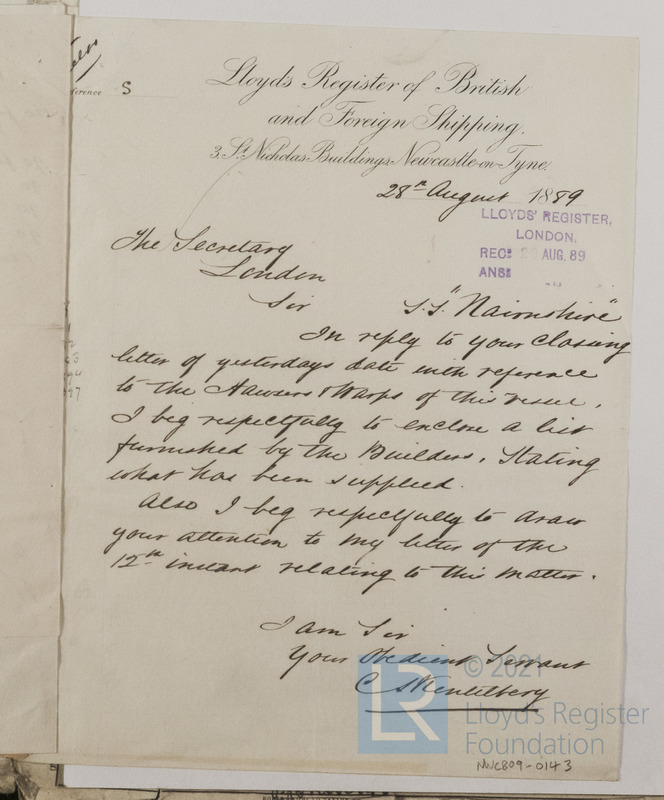 ference S
Lloyds Register of British
and Foreign Shipping.
3, St. Nicholas Buildings Newcastle-on-Tyne.
28th August 1889
LLOYDS' REGISTER,
LONDON.
REC: AUG. 89
ANS:
The Secretary
London
Sir S.S. "Nairnshire"
In reply to your Classing
letter of yesterdays date with reference
to the Hawsers & Warps of this vessel,
I beg respectfully to enclose a list
furnished by the Builders, Stating
what has been supplied.
Also I beg respectfully to draw
your attention to my letter of the
12th instant relating to this matter.
I am Sir
Your Obedient Servant
C
LR
© 2021
Lloyd's Register
Foundation
NWC809-0143